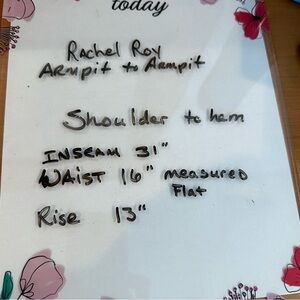 today
Rachel Roy
ARMpit to ARMpit
Shoulder to hem
INSEAM 31"
WAIST 16" measured
Flat
Rise 13"